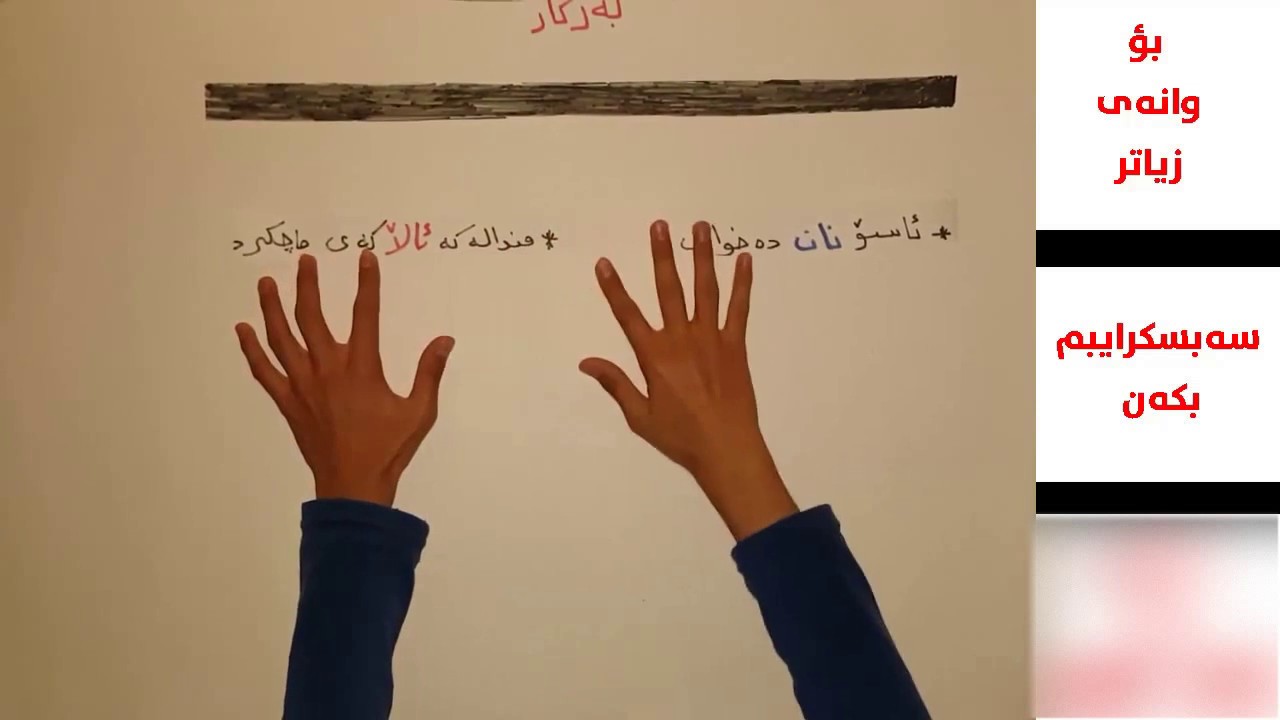 بەرکار
* ئاسۆ نان دەخوات
* منداڵەکە ئاڵاکەی ماچکرد
بۆ
وانەی
زیاتر
سەبسکرایبم
بکەن